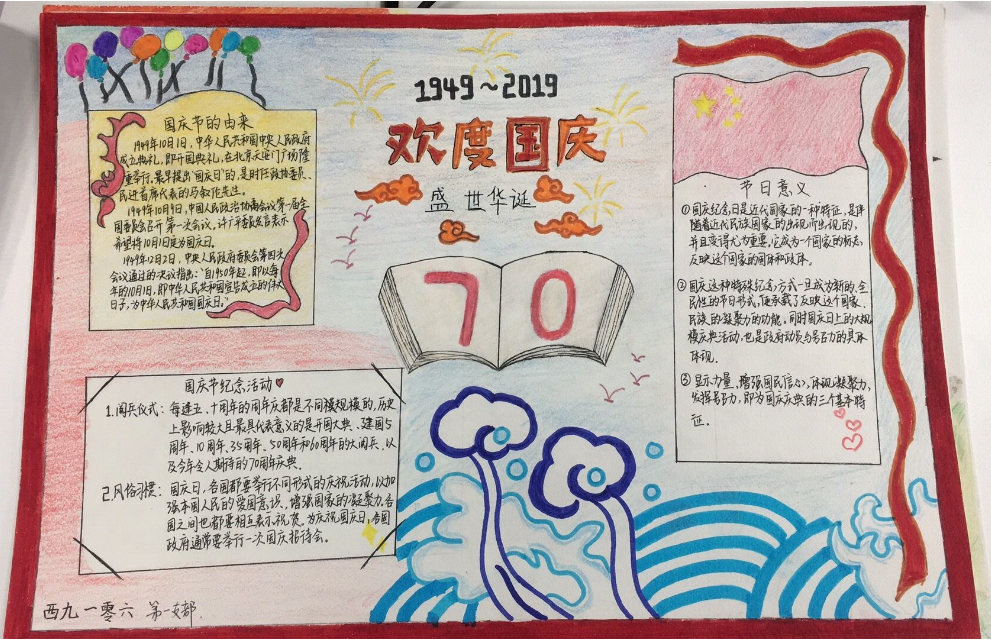 1949～2019
欢度国庆
盛世华诞
70
国庆节的由来
1949年10月1日,中华人民共和国中央人民政府
成立典礼,即开国典礼,在北京天安门广场隆
重举行,最早提出"国庆日"的,是时任政协委员、
民进首席代表的马叙伦先生。
1949年10月9日,中国人民政治协商会议第一届全
国委员会召开第一次会议,许广平委员发言表示
希望将10月1日定为国庆日。
1949年12月2日,中央人民政府委员会第四次
会议通过的决议指出:"自1950年起,即以每
年的10月1日,即中华人民共和国宣告成立的伟大
日子,为中华人民共和国国庆日。"
国庆节纪念活动
1.阅兵仪式:每逢五、十周年的周年庆都是不同规模的,历史
上影响较大且最具代表意义的是开国大典、建国5
周年、10周年、35周年、50周年和60周年的大阅兵,以
及今年令人期待的70周年庆典。
2.风俗习惯:国庆日,各国都要举行不同形式的庆祝活动,以加
强本国人民的爱国意识,增强国家的凝聚力,各
国之间也都要相互表示祝贺。为庆祝国庆日,各国
政府通常要举行一次国庆招待会。
节日意义
①国庆纪念日是近代国家的一种特征,是伴
随着近代民族国家的出现而出现的,
并且变得尤为重要,它成为一个国家的标志,
反映这个国家的国体和政体。
②国庆这种特殊纪念方式一旦成为新的、全
民性的节日形式,便承载了反映这个国家、
民族的凝聚力的功能。同时国庆日上的大规
模庆典活动,也是政府动员与号召力的具体
体现。
③显示力量、增强国民信心,体现凝聚力,
发挥号召力,即为国庆庆典的三个基本特
征。
西九一零六 第一支部.